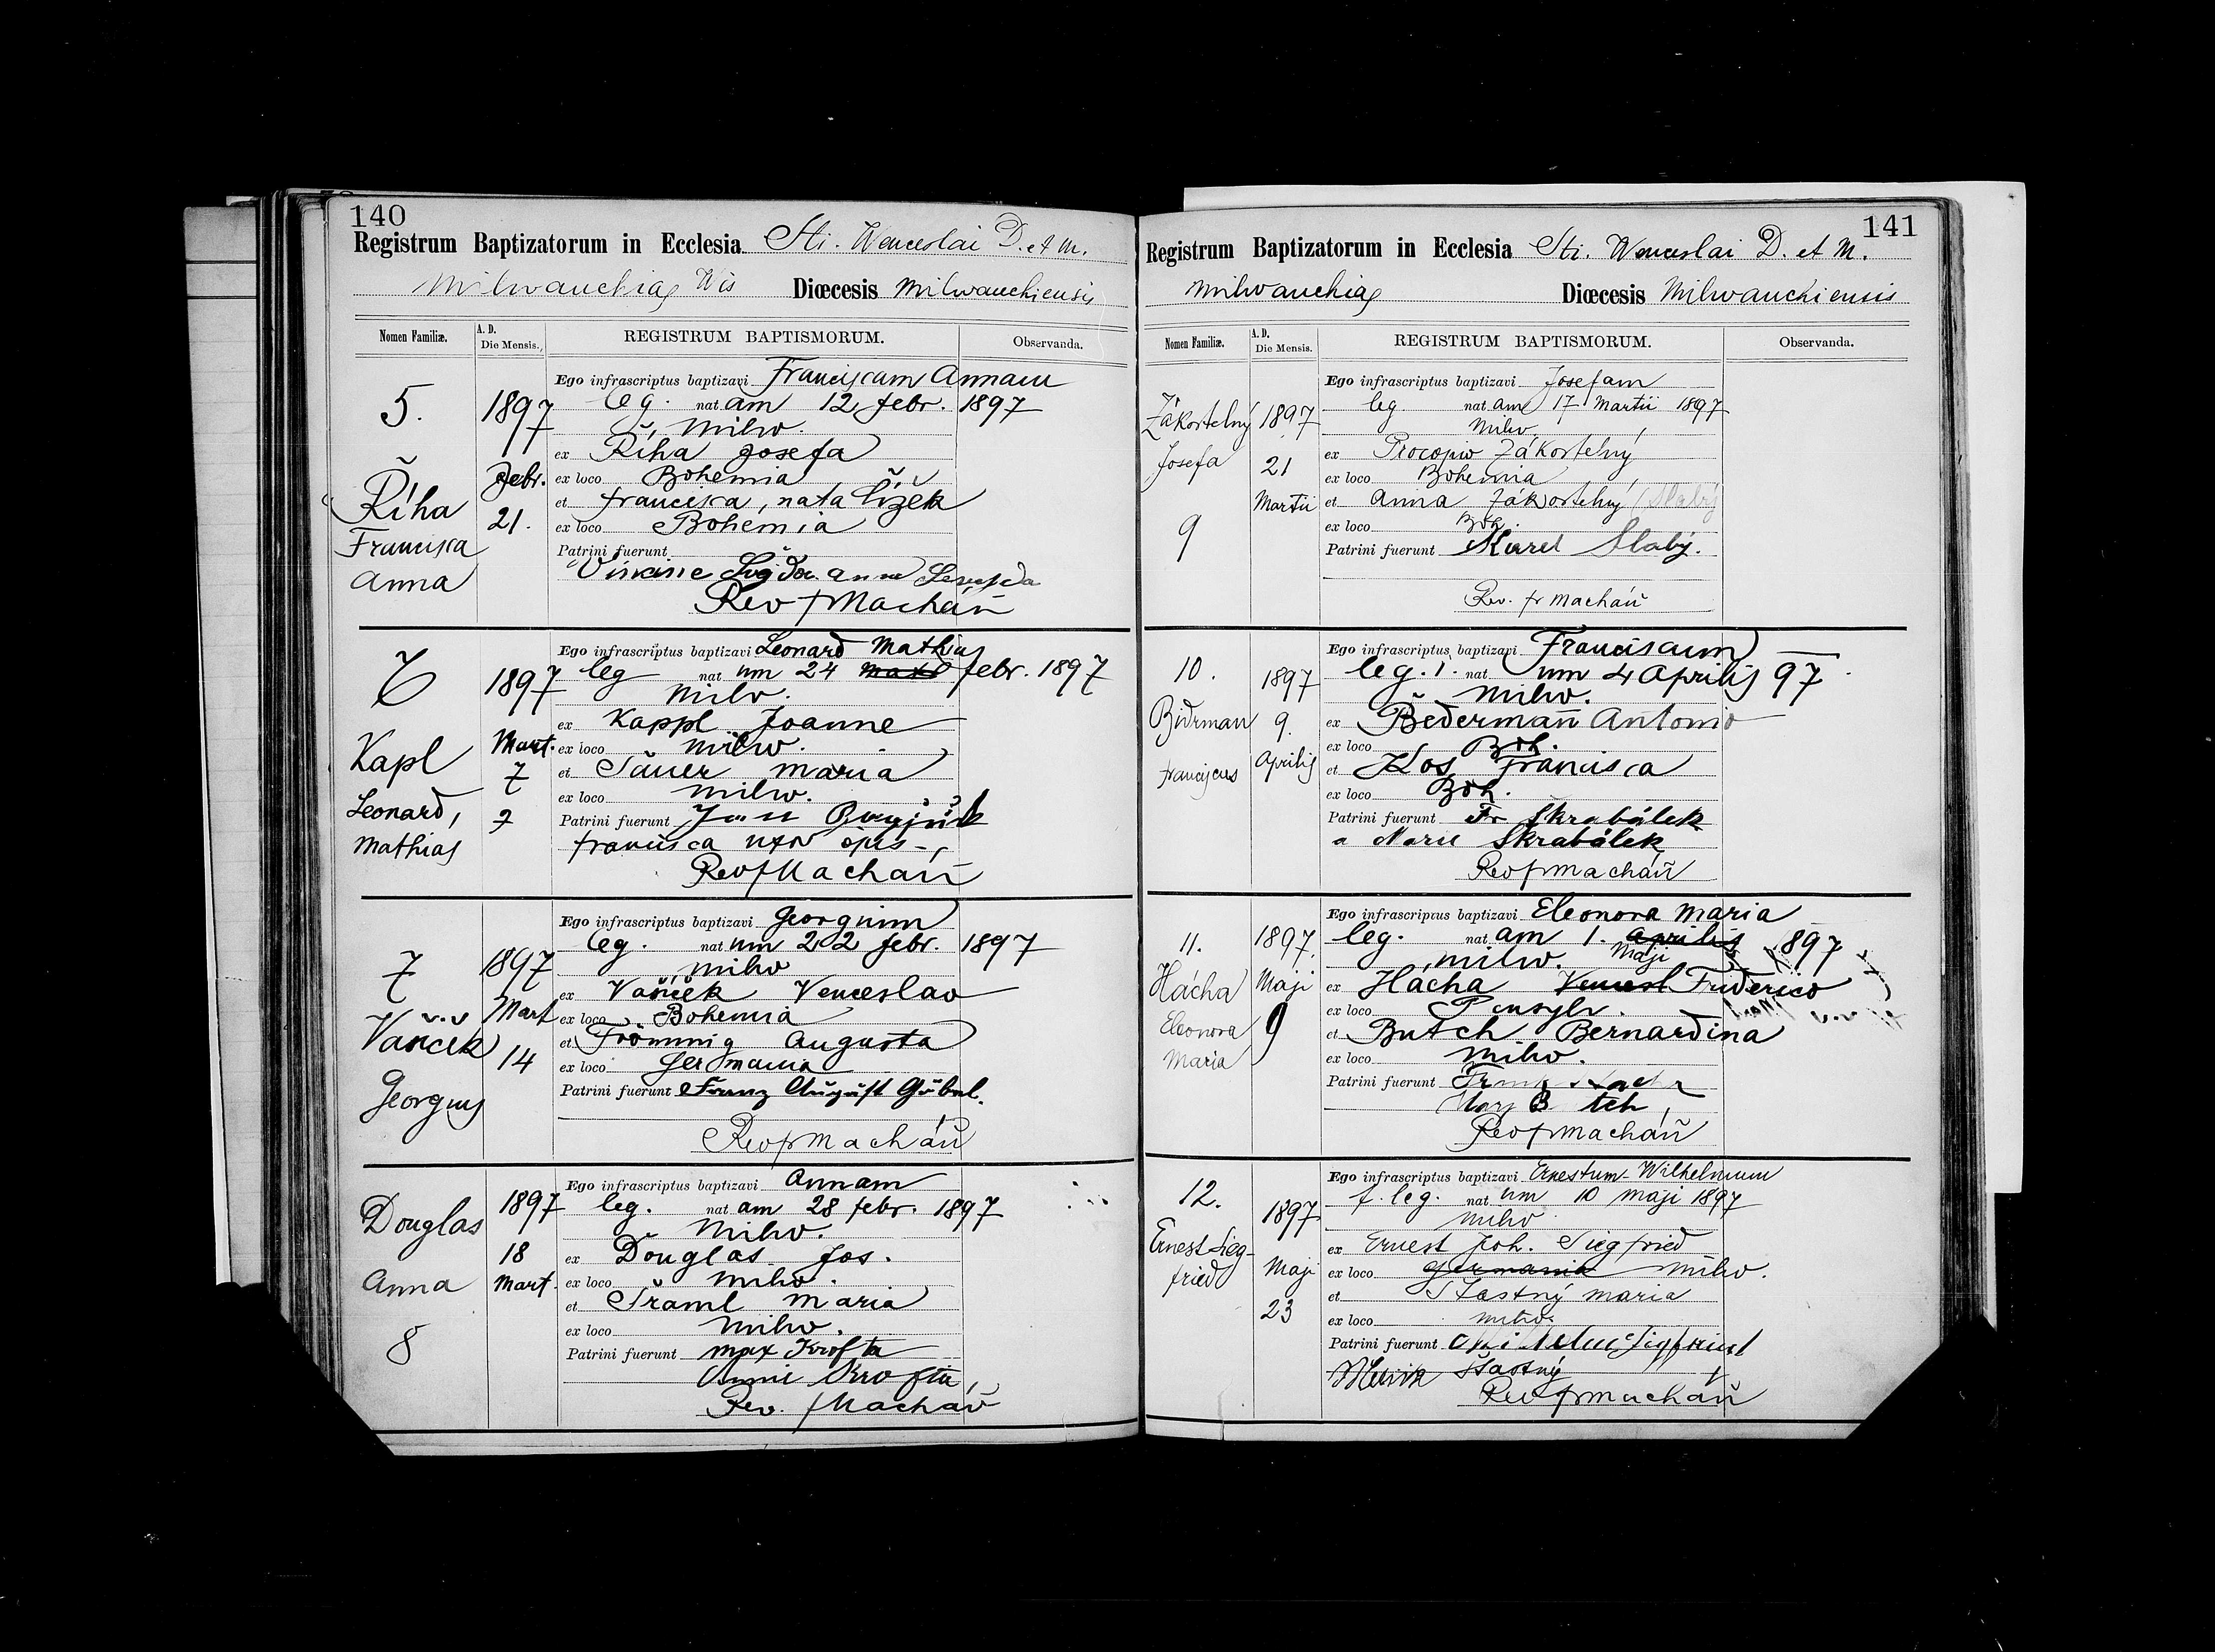 140
Registrum Baptizatorum in Ecclesia Sti. Wenceslai D. et M.
Milwauchiae Wis Diœcesis Milwauchiensis
Nomen Familiæ. A. D. Die Mensis. REGISTRUM BAPTISMORUM. Observanda.
5.
Říha
Francisca
Anna
1897
Febr.
21.
Ego infrascriptus baptizavi Franciscam Annam
leg. nat am 12 febr. 1897
Milw.
ex Říha Josefa
ex loco Bohemia
et francisca, nata Čížek
ex loco Bohemia
Patrini fuerunt
Anna
Rev f Macháň
6
Kapl
Leonard,
Mathias
1897
Mart.
7
7
Ego infrascriptus baptizavi Leonard Mathias
leg nat um 24 febr. 1897
Milw.
ex Kappl Joanne
ex loco Milw.
et Sauer Maria
ex loco Milw.
Patrini fuerunt Jan
francisca
Rev f Macháň
7
Vaňček
Georgius
1897
Mart
14
Ego infrascriptus baptizavi Georgium
leg. nat um 22 febr. 1897
Milw
ex Vaníček Venceslao
ex loco Bohemia
et Frömmig Augusta
ex loco Germania
Patrini fuerunt Franz August Göbel.
Rev fr Macháň
Douglas
Anna
8
1897
18
Mart.
Ego infrascriptus baptizavi Annam
leg. nat am 28 febr. 1897
Milw.
ex Douglas Jos.
ex loco Milw.
et Šraml Maria
ex loco Milw.
Patrini fuerunt Max Krofta
Annie Krofta
Rev. f Macháň
141
Registrum Baptizatorum in Ecclesia Sti. Wenceslai D. et M.
Milwauchiae Diœcesis Milwauchiensis
Nomen Familiæ. A. D. Die Mensis. REGISTRUM BAPTISMORUM. Observanda.
Zákostelný
Josefa
9
1897
21
Martii
Ego infrascriptus baptizavi Josefam
leg. nat am 17 Martii 1897
Milw.
ex Procopio Zákostelný
ex loco Bohemia
et Anna Zákostelný (Slabý
ex loco Boh.
Patrini fuerunt Karel Slabý.
Rev. fr Macháň
10.
Bidrman
franciscus
1897
9.
Aprilis
Ego infrascriptus baptizavi Franciscum
leg. i. nat um 4 Aprilis 97
Milw.
ex Bederman Antonio
ex loco Boh.
et Kos Francisca
ex loco Boh.
Patrini fuerunt Fr. Skrabálek
a Marie Skrabálek
Rev fr Macháň
11.
Hácha
Eleonora
Maria
1897.
Maji
9
Ego infrascriptus baptizavi Eleonora Maria
leg. nat am 1. Aprilis 1897
Maji
Milw.
ex Hácha Vencesl Friderico
ex loco Pensylv.
et Butch Bernardina
ex loco Milw.
Patrini fuerunt
Rev fr Macháň
12.
Ernest Sieg-
fried
1897
Maji
23
Ego infrascriptus baptizavi Ernestum Wilhelmum
f. leg. nat um 10 Maji 1897
Milw
ex Ernest Joh. Siegfried
ex loco Germania Milw.
et Stastný Maria
ex loco Milw.
Patrini fuerunt
Šťastný
Rev fr Macháň